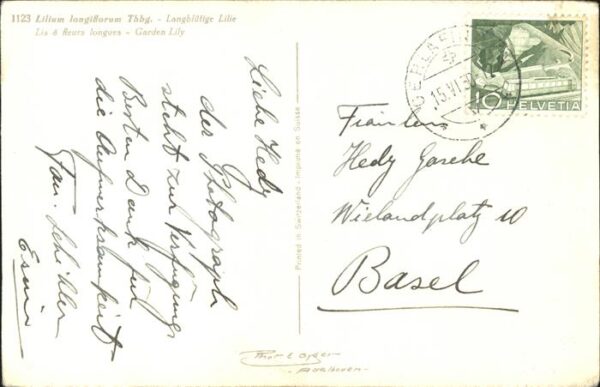 1123 Lilium longiflorum Thbg. - Langblütige Lilie
Lis à fleurs longues - Garden Lily
Liebe Hedy
der Photograph
steht zur Verfügung
Besten Dank für
die Aufmerksamkeit
Fam. Schibler
Printed in Switzerland - Imprimé en Suisse
15.VI.
10 HELVETIA
Fräulein
Hedy
Wielandplatz 10
Basel